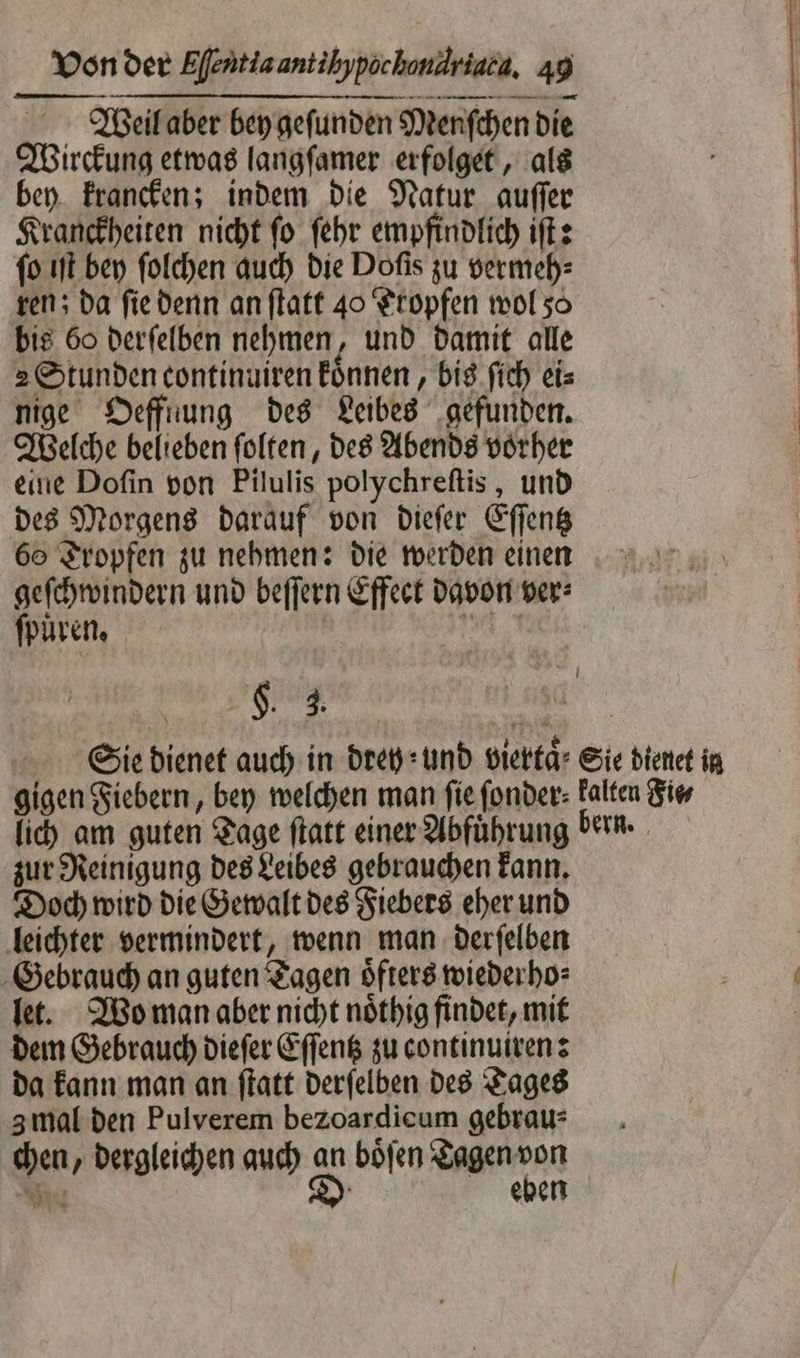 Von der Eſſentia antihypochondriaca. 49
Weil aber bey geſunden Menſchen die
Wirckung etwas langſamer erfolget, als
bey krancken; indem die Natur auſſer
Kranckheiten nicht ſo ſehr empfindlich iſt:
ſo iſt bey ſolchen auch die Doſis zu vermeh-
ren; da ſie denn an ſtatt 40 Tropfen wol 50
bis 60 derſelben nehmen, und damit alle
2 Stunden continuiren koͤnnen, bis ſich ei-
nige Oeffnung des Leibes gefunden.
Welche belieben ſolten, des Abends vorher
eine Doſin von Pilulis polychreſtis, und
des Morgens darauf von dieſer Eſſentz
60 Tropfen zu nehmen: die werden einen
geſchwindern und beſſern Effect davon ver-
ſpuͤren.
§. 3.
Sie dienet auch in drey- und viertaͤ-
gigen Fiebern, bey welchen man ſie ſonder-
lich am guten Tage ſtatt einer Abfuͤhrung
zur Reinigung des Leibes gebrauchen kann.
Doch wird die Gewalt des Fiebers eher und
leichter vermindert, wenn man derſelben
Gebrauch an guten Tagen oͤfters wiederho-
let. Wo man aber nicht noͤthig findet, mit
dem Gebrauch dieſer Eſſentz zu continuiren:
da kann man an ſtatt derſelben des Tages
3 mal den Pulverem bezoardicum gebrau-
chen, dergleichen auch an boͤſen Tagen von
D eben
Sie dienet in
kalten Fie-
bern.